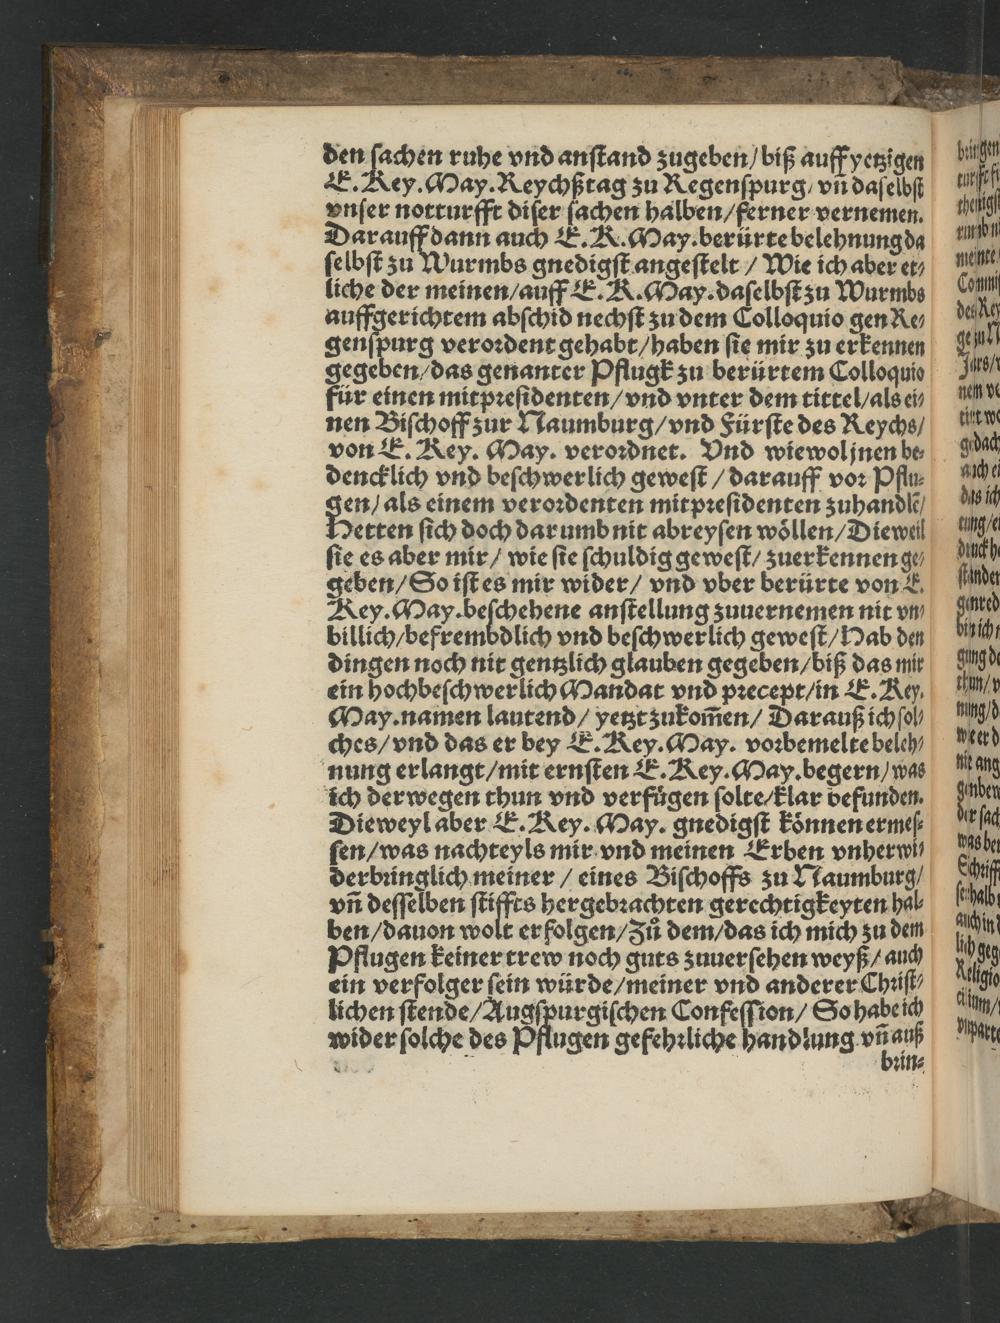 den sachen ruhe vnd anstand zugeben/ biß auff yetzigen
E. Key. May. Reychßtag zu Regenspurg/ vñ daselbst
vnser notturfft diser sachen halben/ ferner vernemen.
Darauff dann auch E. K. May. berürte belehnung da
selbst zu Wurmbs gnedigst angestelt / Wie ich aber et⸗
liche der meinen/ auff E. K. May. daselbst zu Wurmbs
auffgerichtem abschid nechst zu dem Colloquio gen Re⸗
genspurg verordent gehabt/ haben sie mir zu erkennen
gegeben/ das genanter Pflugk zu berürtem Colloquio
für einen mitpresidenten/ vnd vnter dem tittel/ als ei⸗
nen Bischoff zur Naumburg/ vnd Fürste des Reychs/
von E. Key. May. verordnet. Vnd wiewol jnen be⸗
dencklich vnd beschwerlich gewest / darauff vor Pflu⸗
gen/ als einem verordenten mitpresidenten zuhandlẽ/
Hetten sich doch darumb nit abreysen wöllen/ Dieweil
sie es aber mir/ wie sie schuldig gewest/ zuerkennen ge⸗
geben/ So ist es mir wider/ vnd vber berürte von E.
Key. May. beschehene anstellung zuuernemen nit vn⸗
billich/ befrembdlich vnd beschwerlich gewest/ Hab den
dingen noch nit gentzlich glauben gegeben/ biß das mir
ein hochbeschwerlich Mandat vnd precept/ in E. Key.
May. namen lautend/ yetzt zukom̃en/ Darauß ich sol⸗
ches/ vnd das er bey E. Key. May. vorbemelte beleh⸗
nung erlangt/ mit ernsten E. Key. May. begern/ was
ich derwegen thun vnd verfügen solte/ klar befunden.
Dieweyl aber E. Key. May. gnedigst können ermes⸗
sen/ was nachteyls mir vnd meinen Erben vnherwi⸗
derbringlich meiner / eines Bischoffs zu Naumburg/
vñ desselben stiffts hergebrachten gerechtigkeyten hal⸗
ben/ dauon wolt erfolgen/ Zů dem/ das ich mich zu dem
Pflugen keiner trew noch guts zuuersehen weyß/ auch
ein verfolger sein würde/ meiner vnd anderer Christ⸗
lichen stende/ Augspurgischen Confession/ So habe ich
wider solche des Pflugen gefehrliche handlung vñ auß
brin⸗